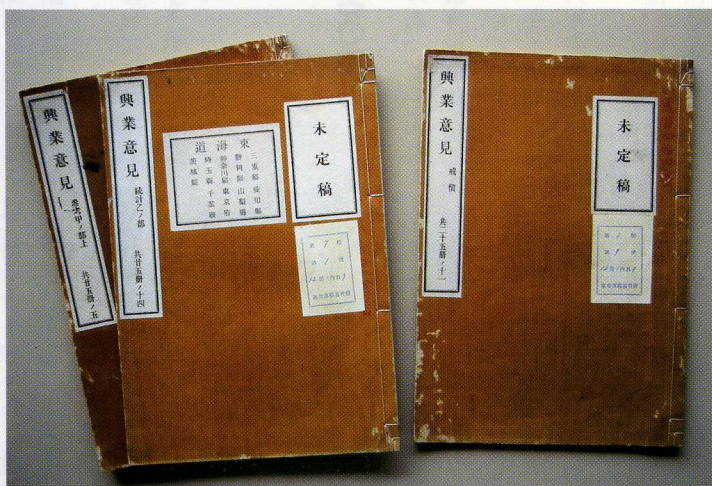 興業意見
共廿五册ノ五
興業意見 統計乙ノ部 共廿五册ノ十四
東海道
三重縣 愛知縣
靜岡縣 山梨縣
神奈川縣 東京府
埼玉縣 千葉縣
茨城縣
未定稿
興業意見 戒愼 共二十五册ノ十一
未定稿